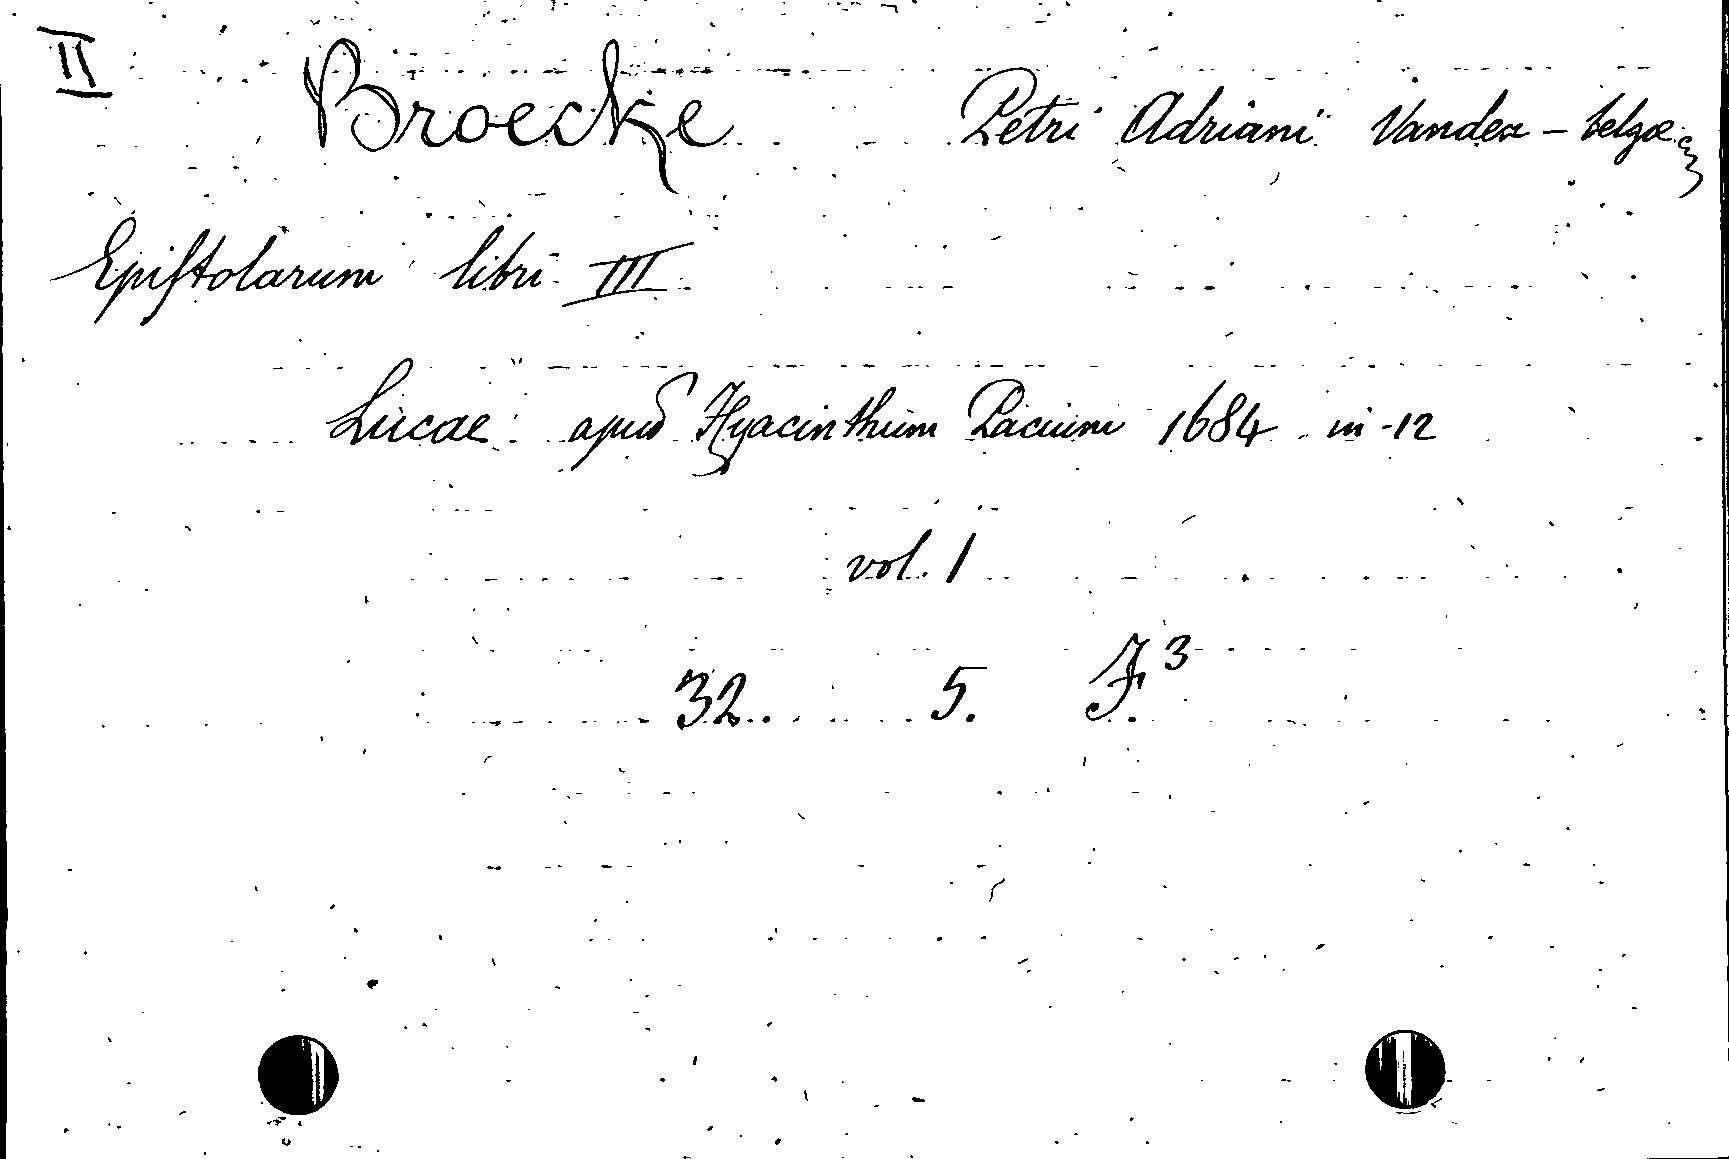 II
Broecke Petri Adriani Vander – belgæ
Epistolarum libri III
Lucae apud Hyacinthum Pacium 1684 in-12
vol. 1
32. 5. F.³